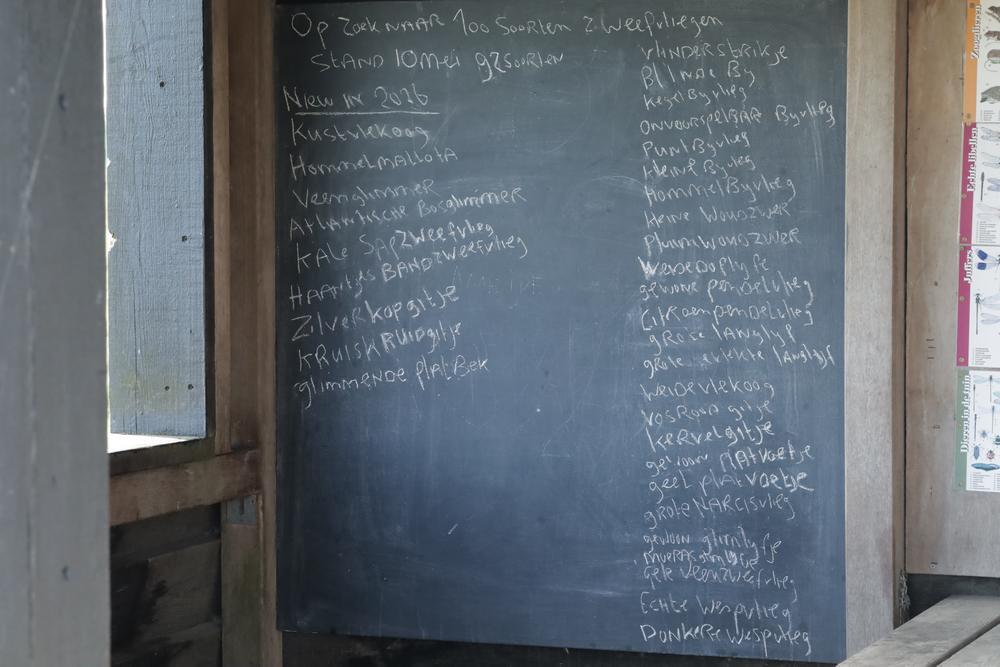 Op Zoek NAAR 100 Soorten zweefvliegen
STAND 10 Mei 92 soorten
Niew in 2026
Kustvlekoog
Hommelmallota
Veenglimmer
Atlantische Bosglimmer
KALE SApzweefvlieg
HAArtjes BANDzweefvlieg
Zilverkopgitje
KRUISKRUIDgitje
glimmende plAtBek
vlinderstrikje
Blinde By
Kegel Byvlieg
onvoorspelBAR Byvlieg
Punt Byvlieg
kleine Byvlieg
Hommel Byvlieg
kleine Woudzwever
pluimwoudzwever
Weidedoflyfje
gewone pendelvlieg
Citroenpendelvlieg
grote lAnglyf
grote lAnglyf
weidevlekoog
gitje
Kervelgitje
gewoon plAtvoetje
geel plAtvoetje
grote NARCisvlieg
gewoon glimlyfje
gele veenzweefvlieg
Echte wespvlieg
Donkere Wespvlieg
Zoogdieren
Echte libellen
Juffers
Dieren in de tuin